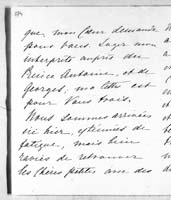 que, mon Cœur demande
pour vous. Soyez mon
interprète auprès du
Prince Antoine, et de
Georges, ma lettre est
pour Vous trois.
Nous sommes arrivées
ici hier, exténuées de
fatigue, mais bien
ravies de retrouver
les chères petites